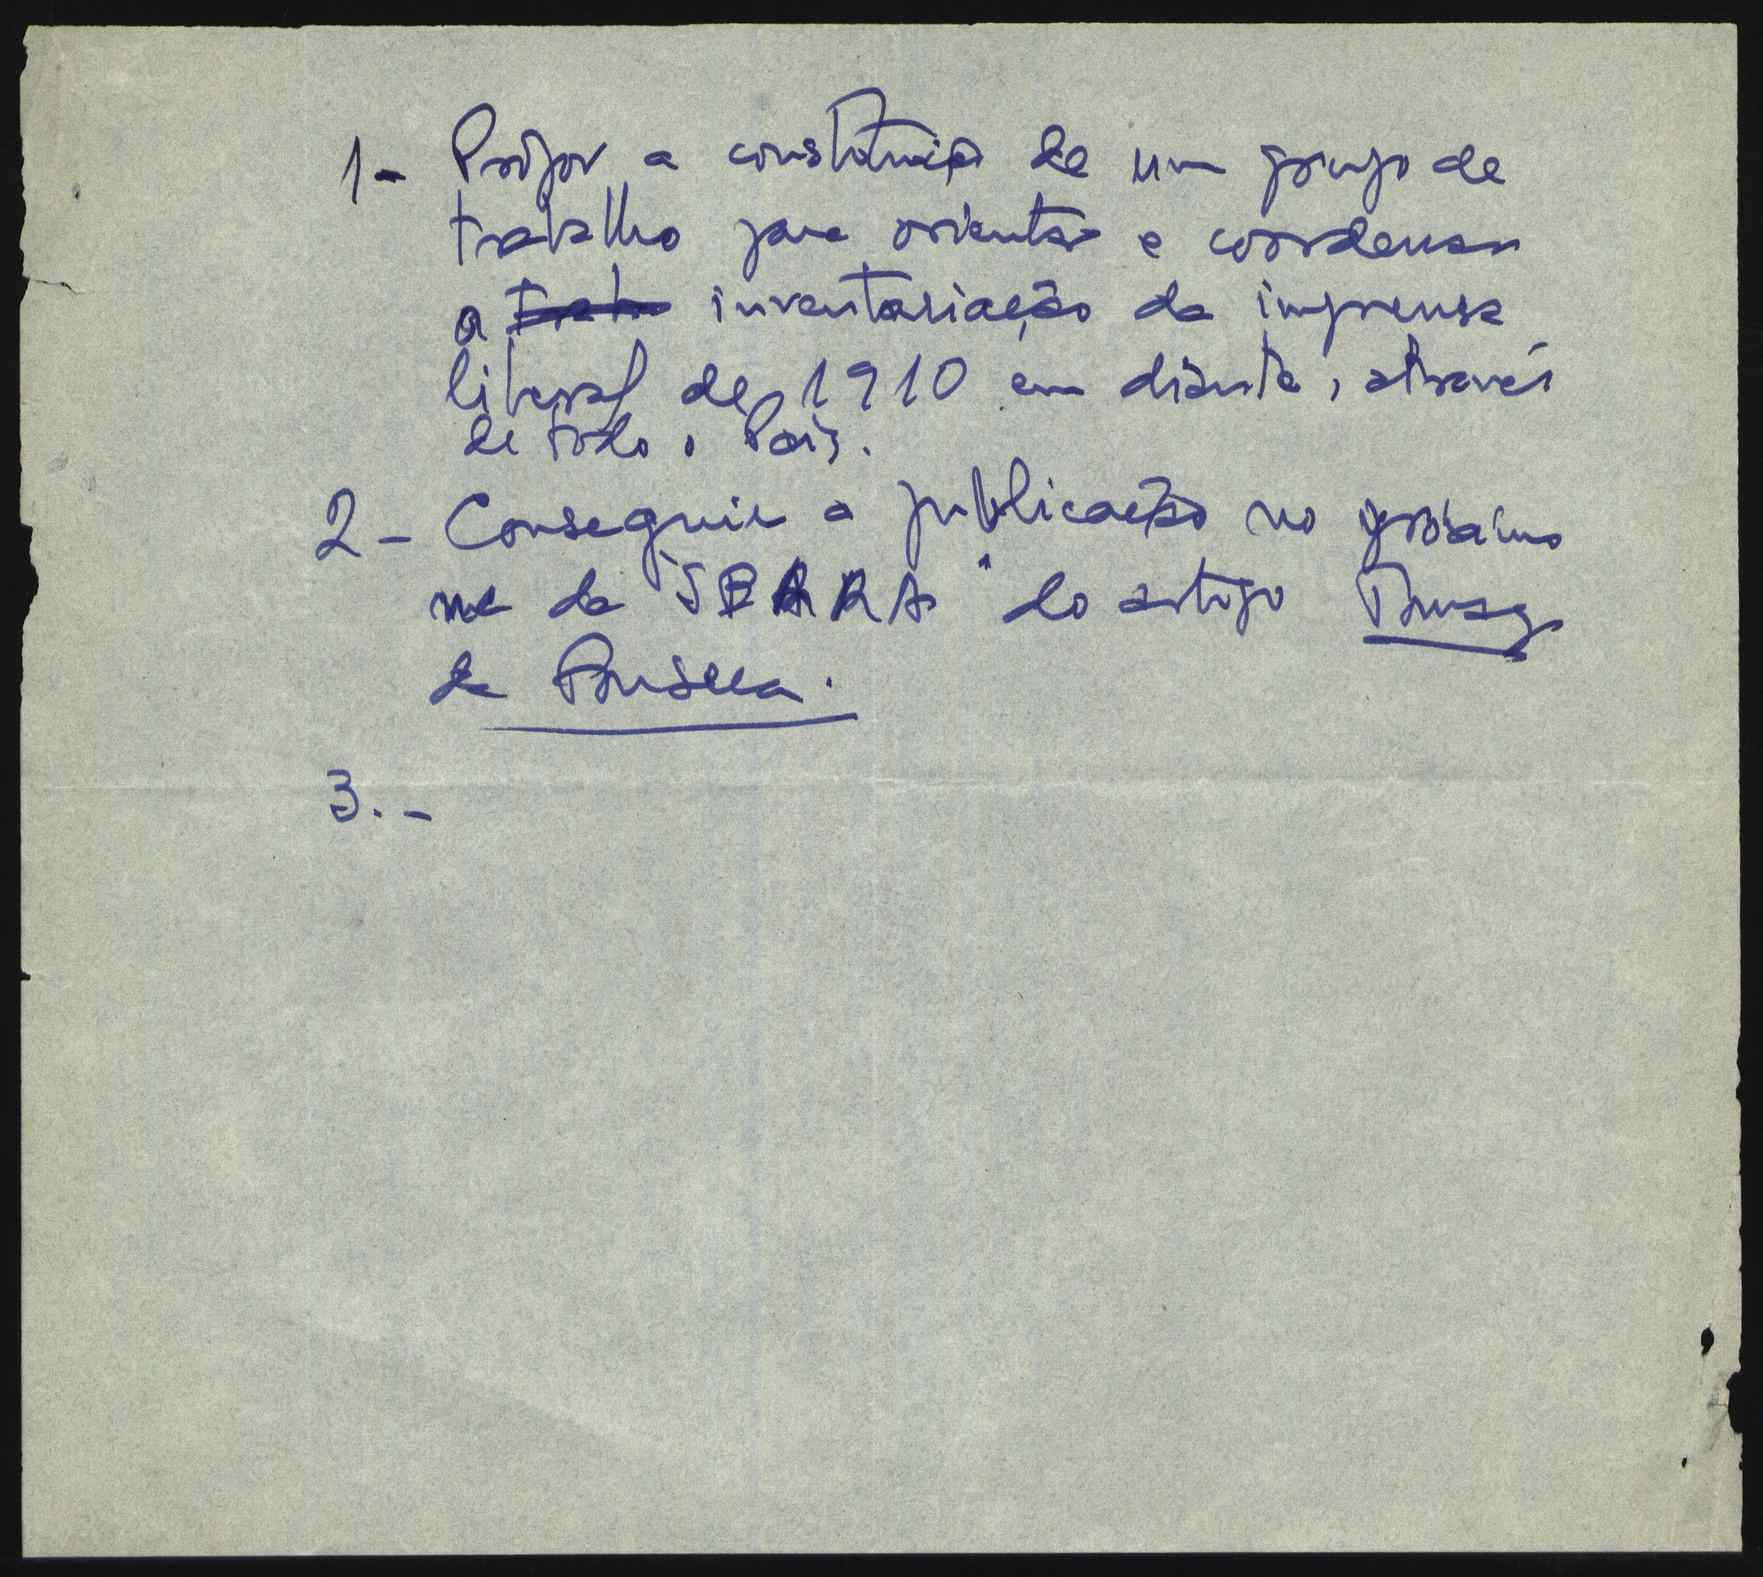 1- Propor a constituição de um grupo de
trabalho para orientar e coordenar
a inventariação da imprensa
liberal de 1910 em diante, através
de todo o País.
2- Conseguir a publicação no próximo
nº da "SEARA" do artigo
da
3.-